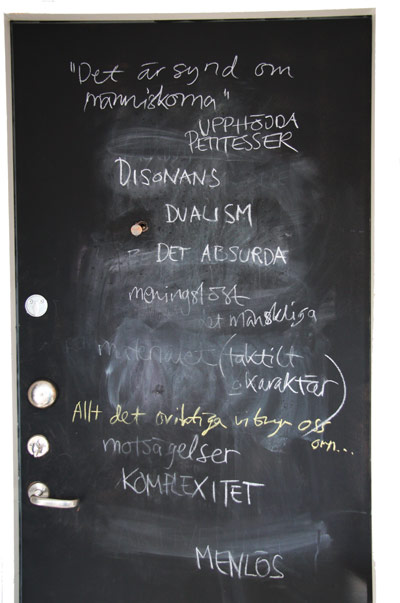 "Det är synd om
människorna"
UPPHÖJDA
PETITESSER
DISONANS
DUALISM
DET ABSURDA
meningslöst
det mänskliga
materialet (taktilt
karaktär)
Allt det oviktiga vi bryr oss
om...
motsägelser
KOMPLEXITET
MENLÖS